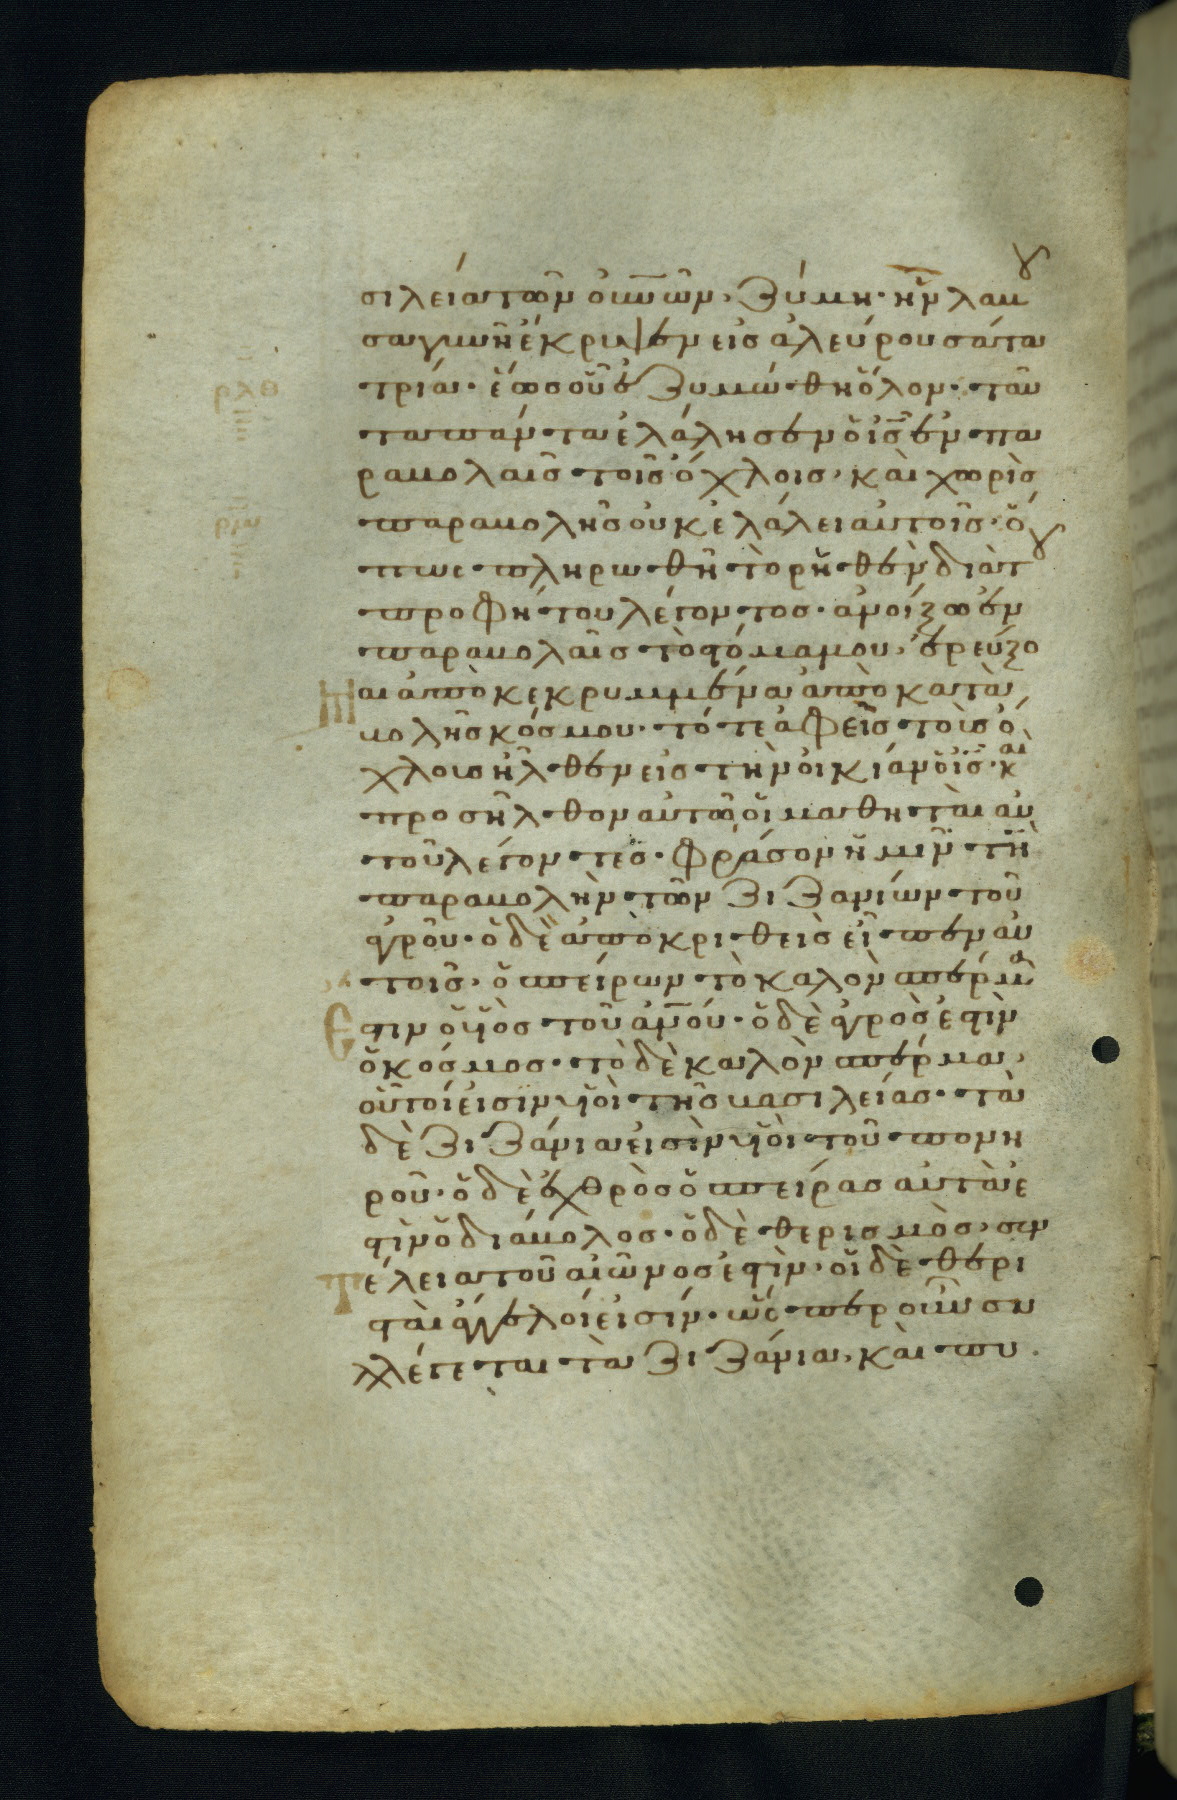 σιλεία τῶν οὐνῶν, ζύμη· ἣν λαβοῦ
σα γυνὴ ἔκρυψεν εἰς ἀλεύρου σάτα
τρία· ἕως οὗ ἐζυμώθη ὅλον· ταῦ
τα πάντα ἐλάλησεν ὁ ις ἐν πα
ραβολαῖς τοῖς ὄχλοις, καὶ χωρὶς
παραβολῆς οὐκ ἐλάλει αὐτοῖς· ὅ
πως πληρωθῆ τὸ ρηθὲν διὰ τοῦ
προφήτου λέγοντος· ἀνοίξω ἐν
παραβολαῖς τὸ στόμα μου, ἐρεύξο
μαι ἀπὸκεκρυμμένα ἀπὸ κατα
βολῆς κόσμου· τότε ἀφεὶς τοὺς ὄ
χλους ἦλθεν εἰς τὴν οἰκίαν ὁ ις· καὶ
προσῆλθον αὐτῶ οἱ μαθηταὶ αὐ
τοῦ λέγοντες· φράσον ἡμῖν τὴν
παραβολὴν τῶν ζιζανίων τοῦ
ἀγροῦ· ὁ δὲ ἀπὸκριθεὶς εἶπεν αὐ
τοῖς, ὁ σπείρων τὸ καλὸν σπέρμα
ἐστιν ὁ υἱὸς τοῦ ἀνου· ὁ δὲ ἀγρὸς ἐστὶν
ὁ κόσμος· τὸ δὲ καλὸν σπέρμα,
οὗτοί εἰσιν υἱοὶ τῆς βασιλείας· τὰ
δὲ ζιζάνια εἰσὶν υἱοὶ τοῦ πονη
ροῦ· ὁ δὲ ἐχθρὸς ὁ σπείρας αὐτὰ ἐ
στὶν ὁ διάβολος· ὁ δὲ θερισμὸς, συν
τέλεια τοῦ αἰῶνος ἐστὶν· οἱ δὲ θερι
σταὶ ἄγγελοί εἰσίν· ὥσπερ οὖν συ
λλέγεται τὰ ζιζάνια, καὶ πυ
ρλθ
ρμ